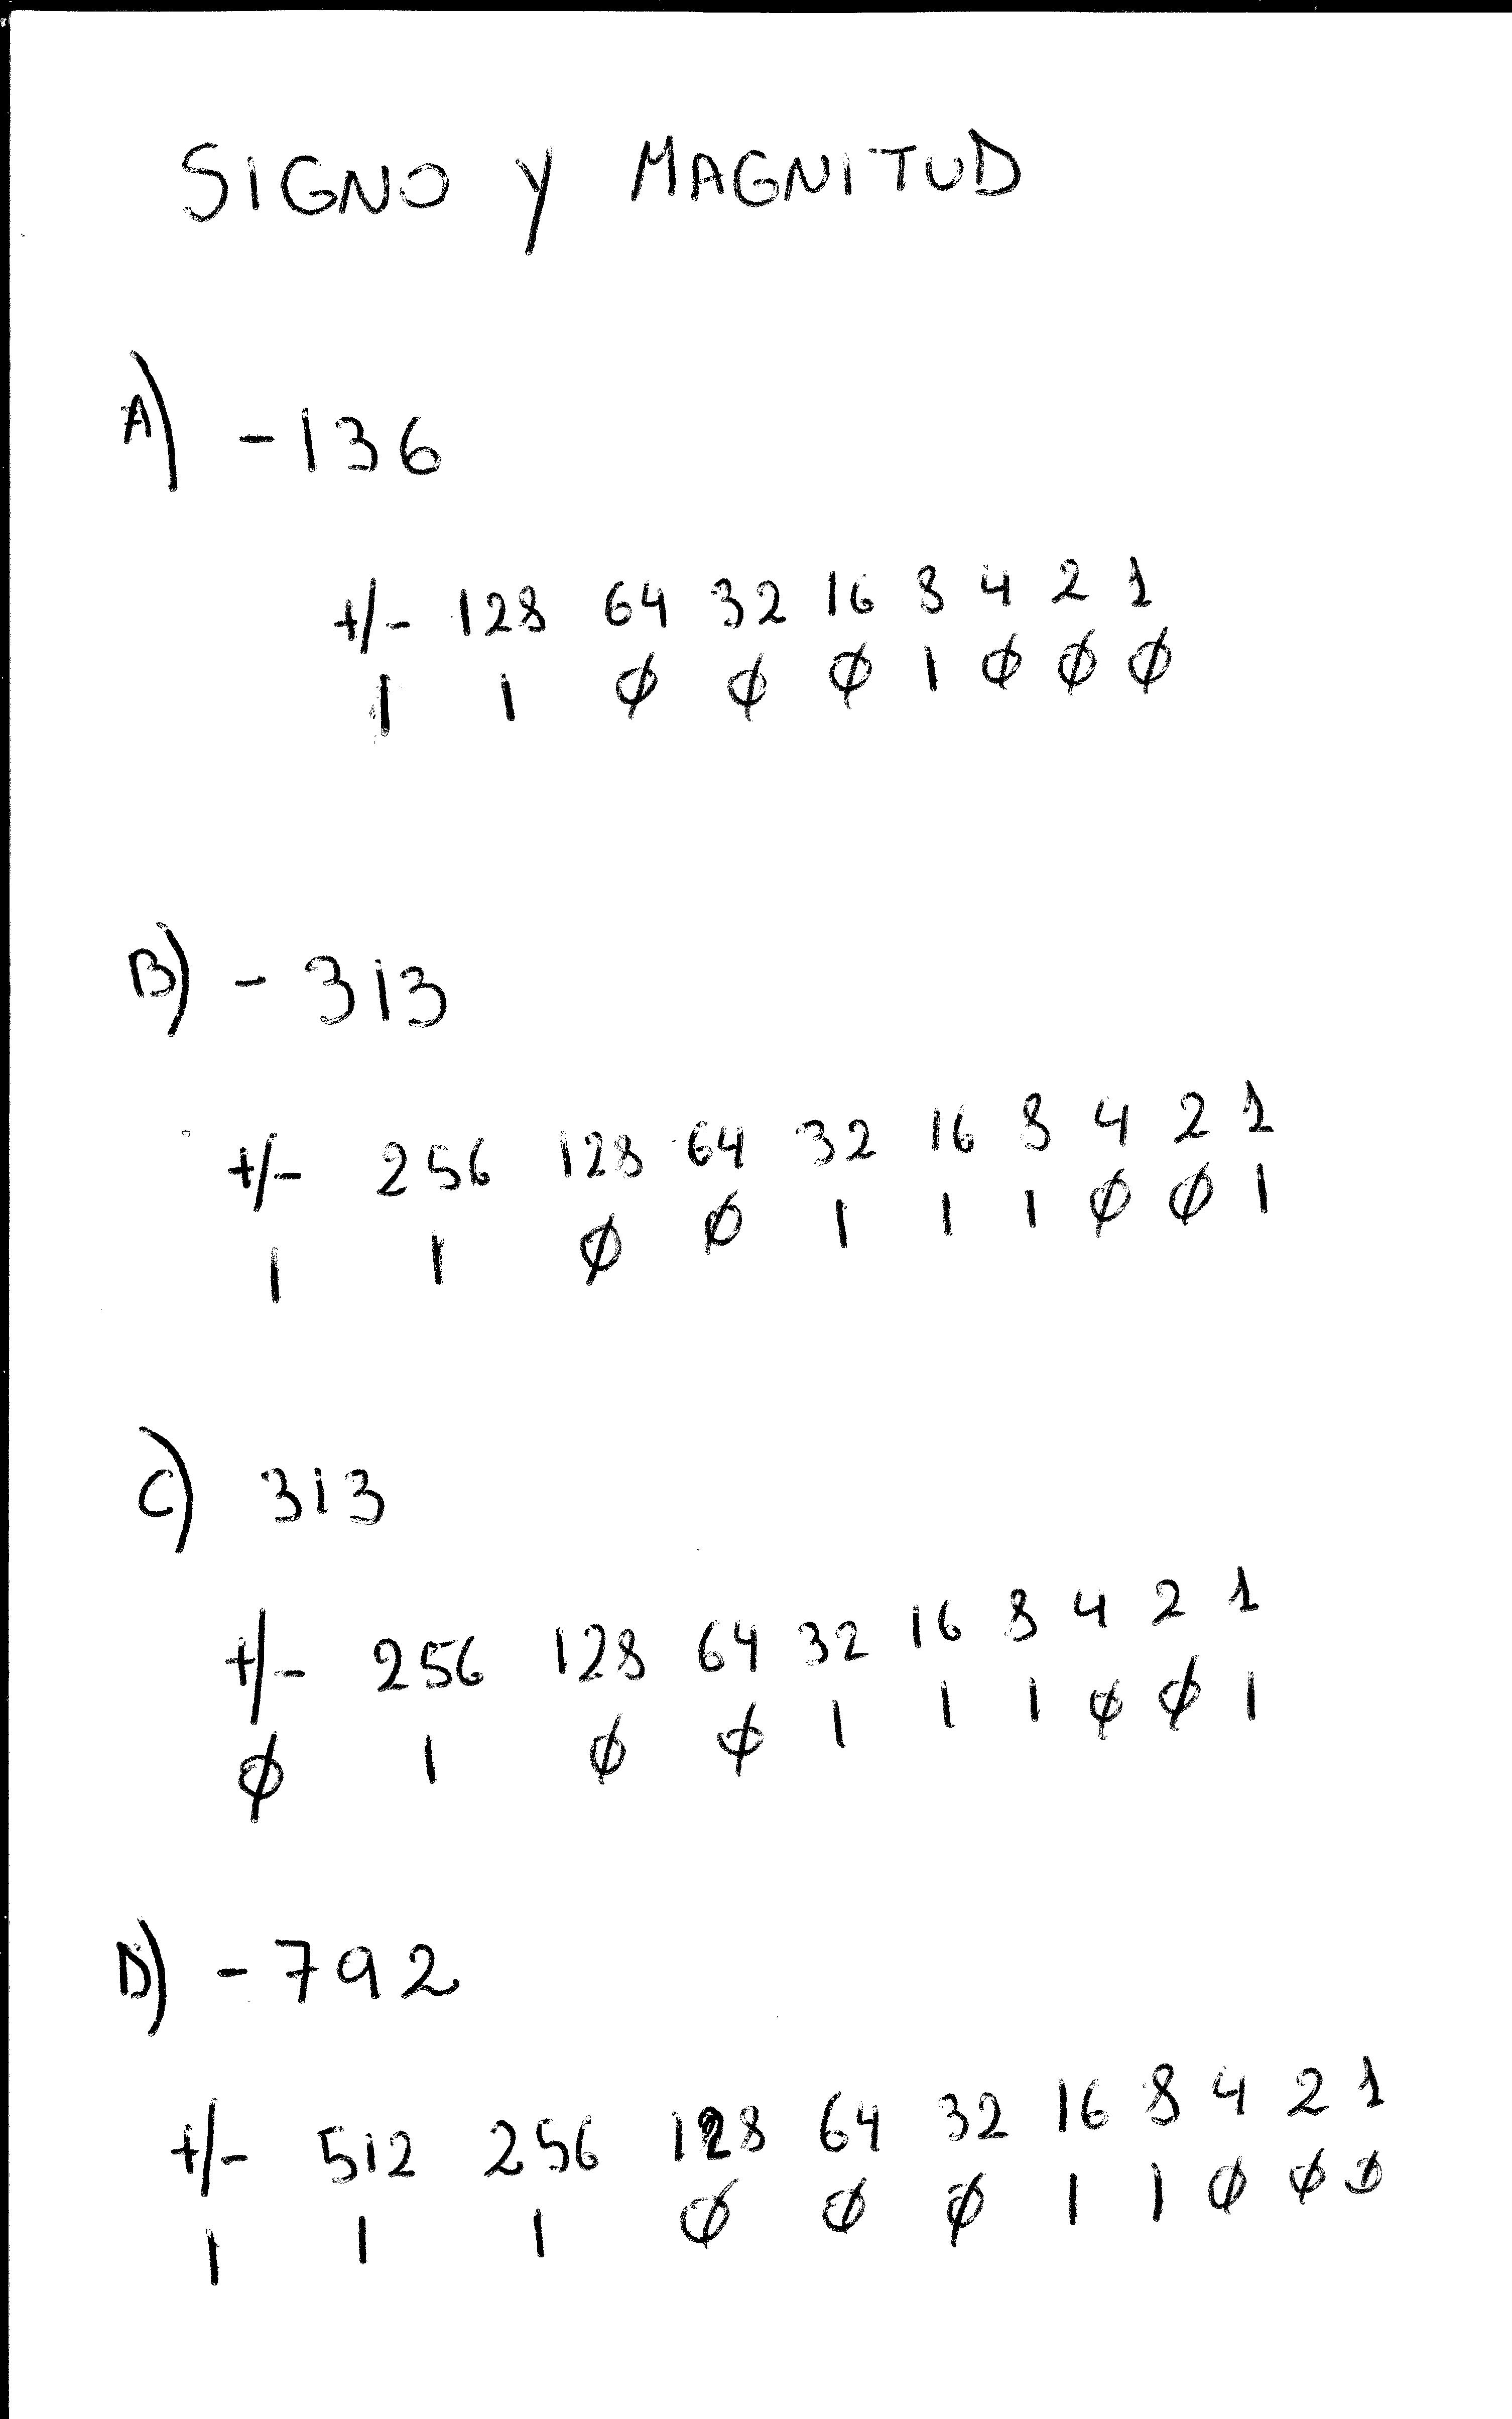 SIGNO Y MAGNITUD
A) -136
+/- 128 64 32 16 8 4 2 1
1 1 Ø Ø Ø 1 Ø Ø Ø
B) - 313
+/- 256 128 64 32 16 8 4 2 1
1 1 Ø Ø 1 1 1 Ø Ø 1
C) 313
+/- 256 128 64 32 16 8 4 2 1
Ø 1 Ø Ø 1 1 1 Ø Ø 1
D) - 792
+/- 512 256 128 64 32 16 8 4 2 1
1 1 1 Ø Ø Ø 1 1 Ø Ø Ø